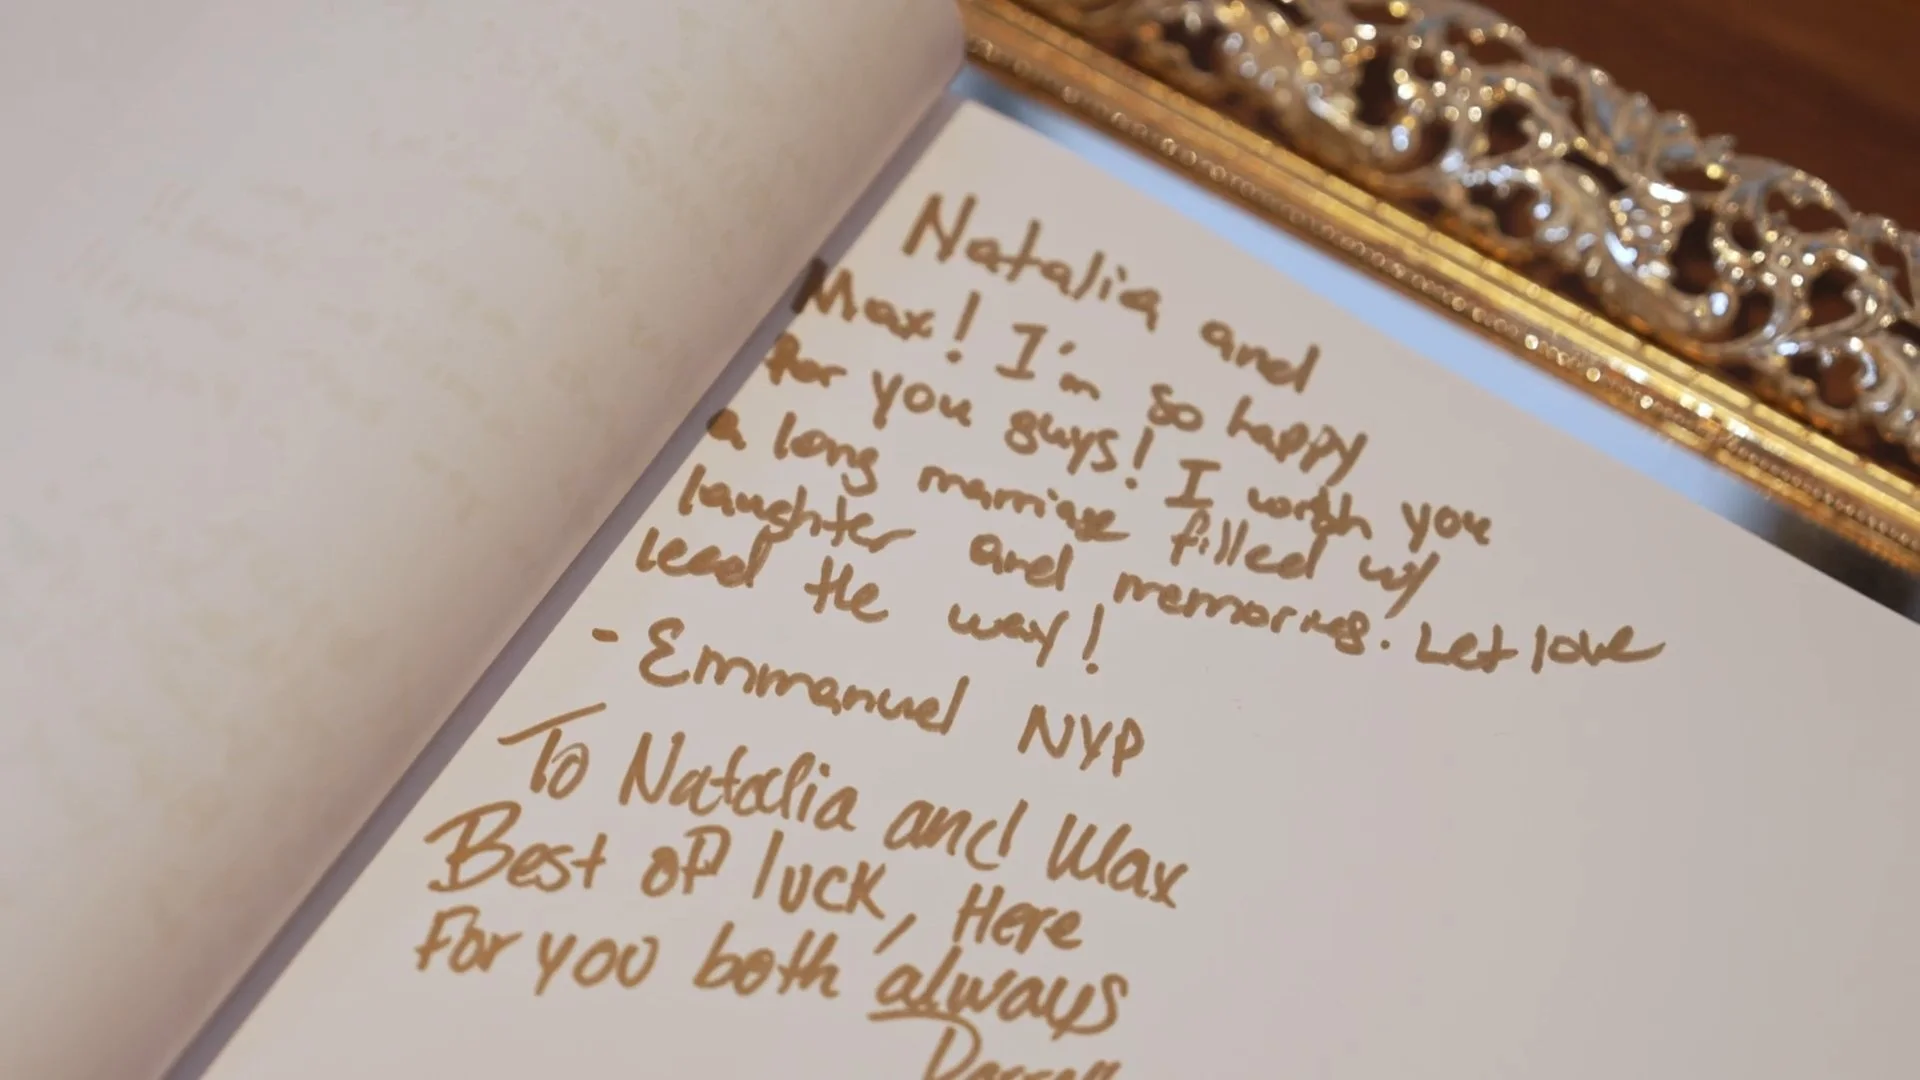 Natalia and
Max! I'm so happy
for you guys! I worth you
a long marriage filled w/
laughter and memories. Let love
lead the way!
- Emmanuel NYP
To Natalia and Max
Best of luck, Here
For you both always